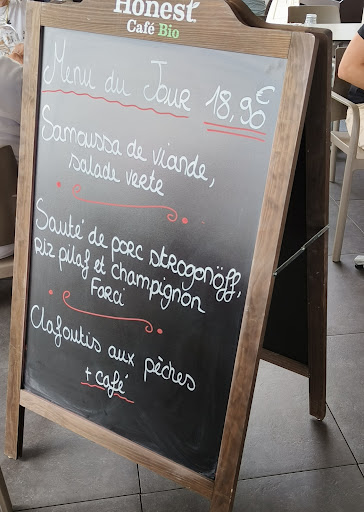 Honest
Café Bio
Menu du Jour 18,90€
Samoussa de viande,
salade verte
Sauté de porc strogonöff,
Riz pilaf et champignon
Farci
Clafoutis aux pêches
+ café